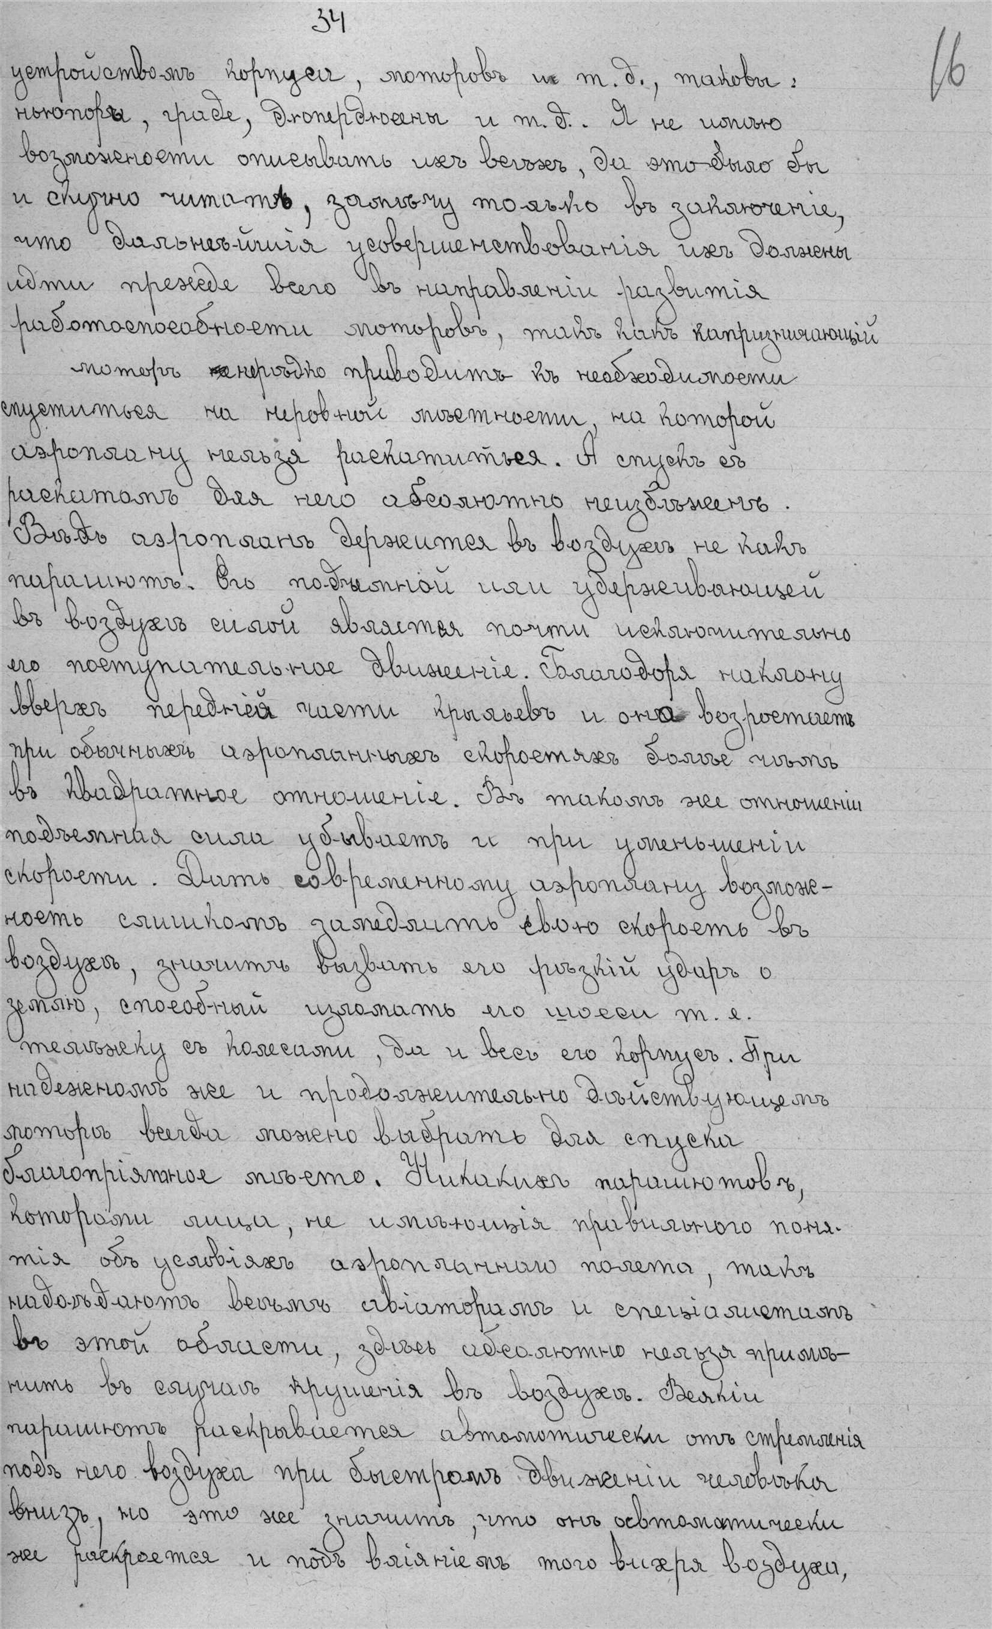 34
16
устройствомъ корпуса, моторовъ и т. д., таковы:
ньюпоры, граде, дюпердюсены и т. д.. Я не имѣю
возможности описывать ихъ всѣхъ, да это было бы
и скучно читать, замѣчу только въ заключеніе,
что дальнѣйшія усовершенствованія ихъ должны
идти прежде всего въ направленіи развитія
работоспособности моторовъ, такъ какъ капризничающій
моторъ нерѣдко приводитъ къ необходимости
спуститься на неровной мѣстности, на которой
аэроплану нельзя раскатиться. А спускъ съ
раскатомъ для него абсолютно неизбѣженъ.
Вѣдь аэропланъ держится въ воздухѣ не какъ
парашютъ. Его подъемной или удерживающей
въ воздухѣ силой является почти исключительно
его поступательное движеніе. Благодоря наклону
вверхъ передней части крыльевъ и она возростаетъ
при обычныхъ аэропланныхъ скоростяхъ болѣе чѣмъ
въ квадратное отношеніе. Въ такомъ же отношеніи
подъемная сила убываетъ и при уменьшеніи
скорости. Дать современному аэроплану возмож-
ность слишкомъ замедлить свою скорость въ
воздухѣ, значитъ вызвать его рѣзкій ударъ о
землю, способный изломать его шасси т. е.
телѣжку съ колесами, да и весь его корпусъ. При
надежномъ же и продолжительно дѣйствующемъ
моторѣ всегда можно выбрать для спуска
благопріятное мѣсто. Никакихъ парашютовъ,
которыми лица, не имѣющія правильного поня-
тія объ условіяхъ аэропланнаго полета, такъ
надоѣдаютъ всѣмъ авіаторамъ и спеціалистамъ
въ этой области, здѣсь абсолютно нельзя примѣ-
нить въ случаѣ крушенія въ воздухѣ. Всякій
парашютъ раскрывается автоматически отъ стремленія
подъ него воздуха при быстромъ движеніи человѣка
внизъ, но это же значитъ, что онъ автоматически
же раскроется и подъ вліяніемъ того вихря воздуха,